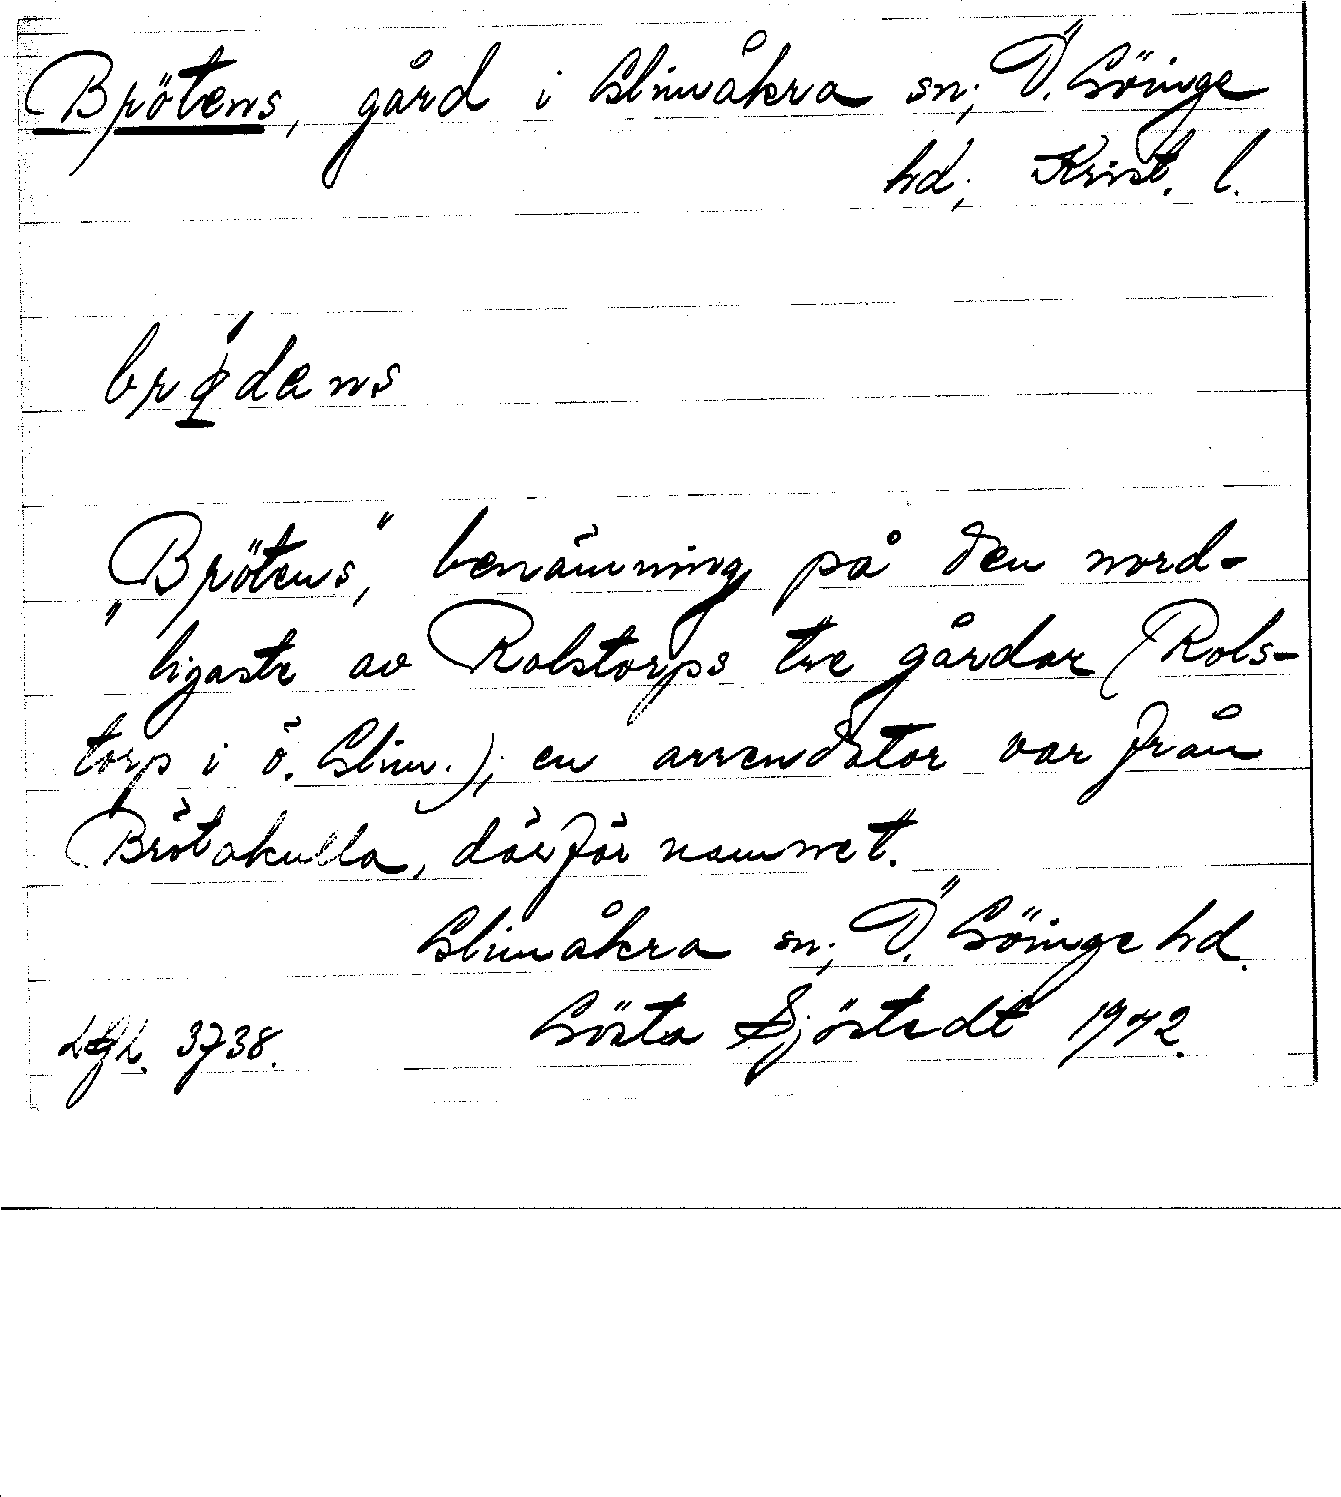 Brötens, gård i Glimåkra sn; Ö. Göinge
hd; Krist. l.
brǿdans
"Brötens", benämning på den nord-
ligaste av Rolstorps tre gårdar (Rols-
torp i ö. Glim.); en arrendator var från
Brötakulla, därför namnet.
Glimåkra sn; Ö. Göinge hd.
Gösta Sjöstedt 1942.
3738.